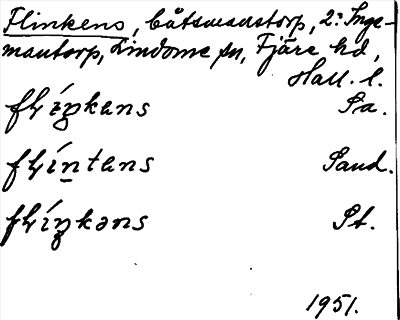 Flinkens, båtsmanstorp, 2:Inge-
mantorp, Lindome sn, Fjäre hd,
Hall. l.
flíŋkens Sa.
flíntens Sand.
flíŋkəns St.
1951.